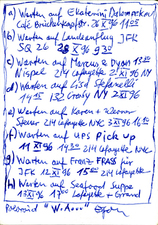 a) Warten auf Ekaterini Dalamaskou
Café Brückenkopf 26 XI 96 14.05
b) Warten auf Landeanflug JFK
SQ 26 28 XI 96 9.30
c) Warten auf Marcus & Dyan 13.00
Nispel 214 Lafayette 29 XI 96 NY
d) Warten auf Lisa Stefanelli
14.05 132 Crosby NY 2 XI 96
e) Warten auf Karen + Werner
214 Lafayette NYC 3 XI 96 14.
f) Warten auf UPS Pick up
11 XI 96 14.00 214 Lafayette NYC
g) Warten auf Franz für
JFK 12 XI 96 15.00 214 Lafayette
h) Warten auf Seafood Suppe
13 XI 96 17.00 Lafayette + Grand
Polaroid "W.A..."